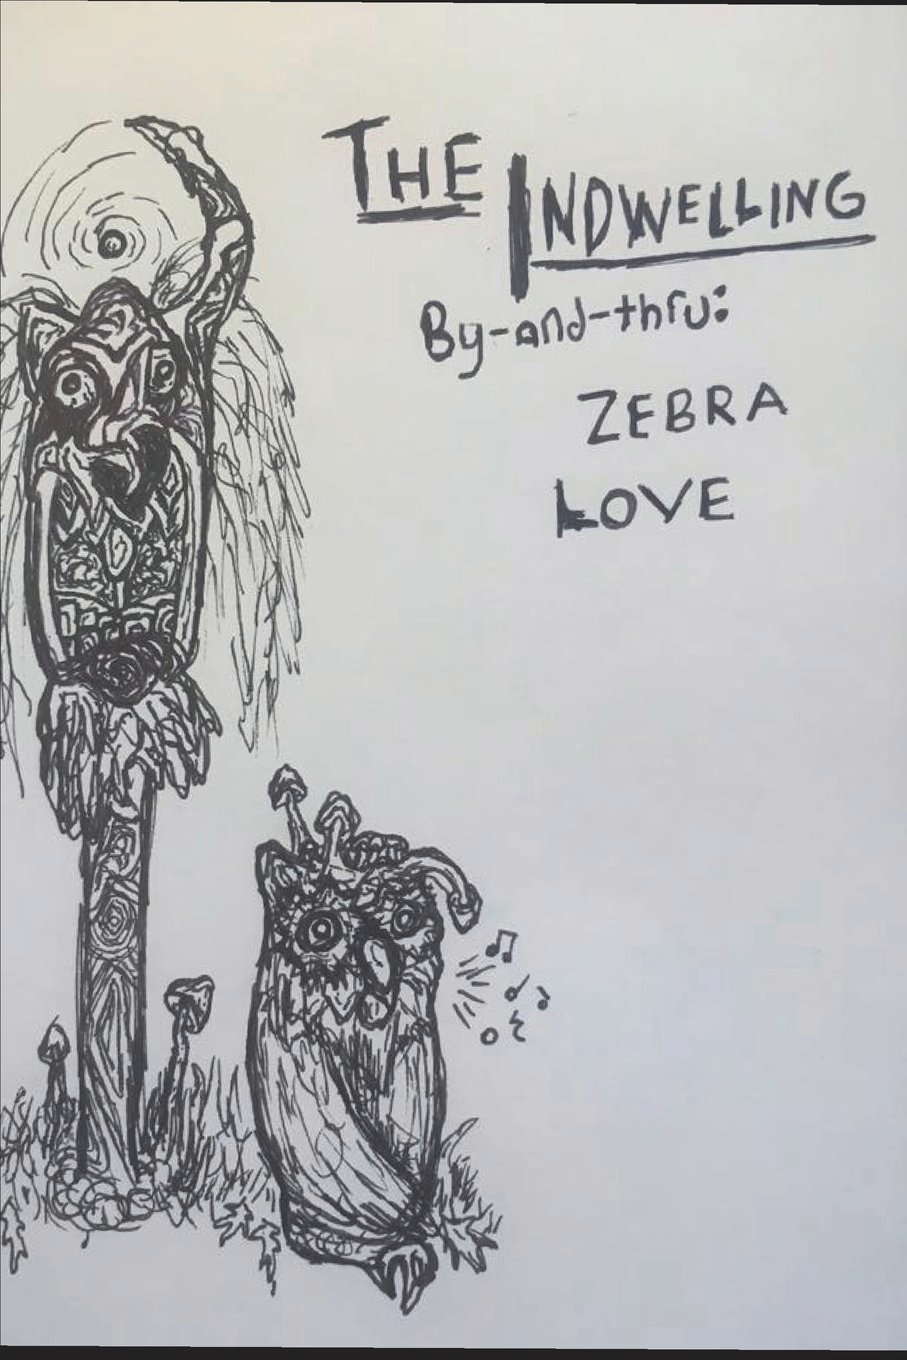 THE
INDWELLING
By-and-thru:
ZEBRA
LOVE